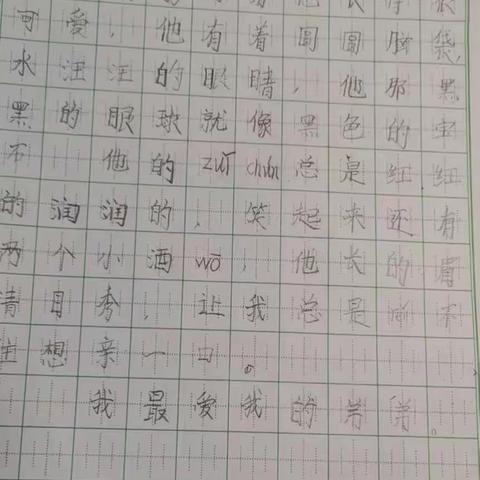 可爱,他有着圆圆脑袋,
水汪汪的眼睛,他那黑
黑的眼球就像黑色的宝
石 他的zuǐ chún总是红红
的润润的,笑起来还有
两个小酒wō,他长的眉
清目秀,让我总是不
住想亲一口。
我最爱我的弟弟。